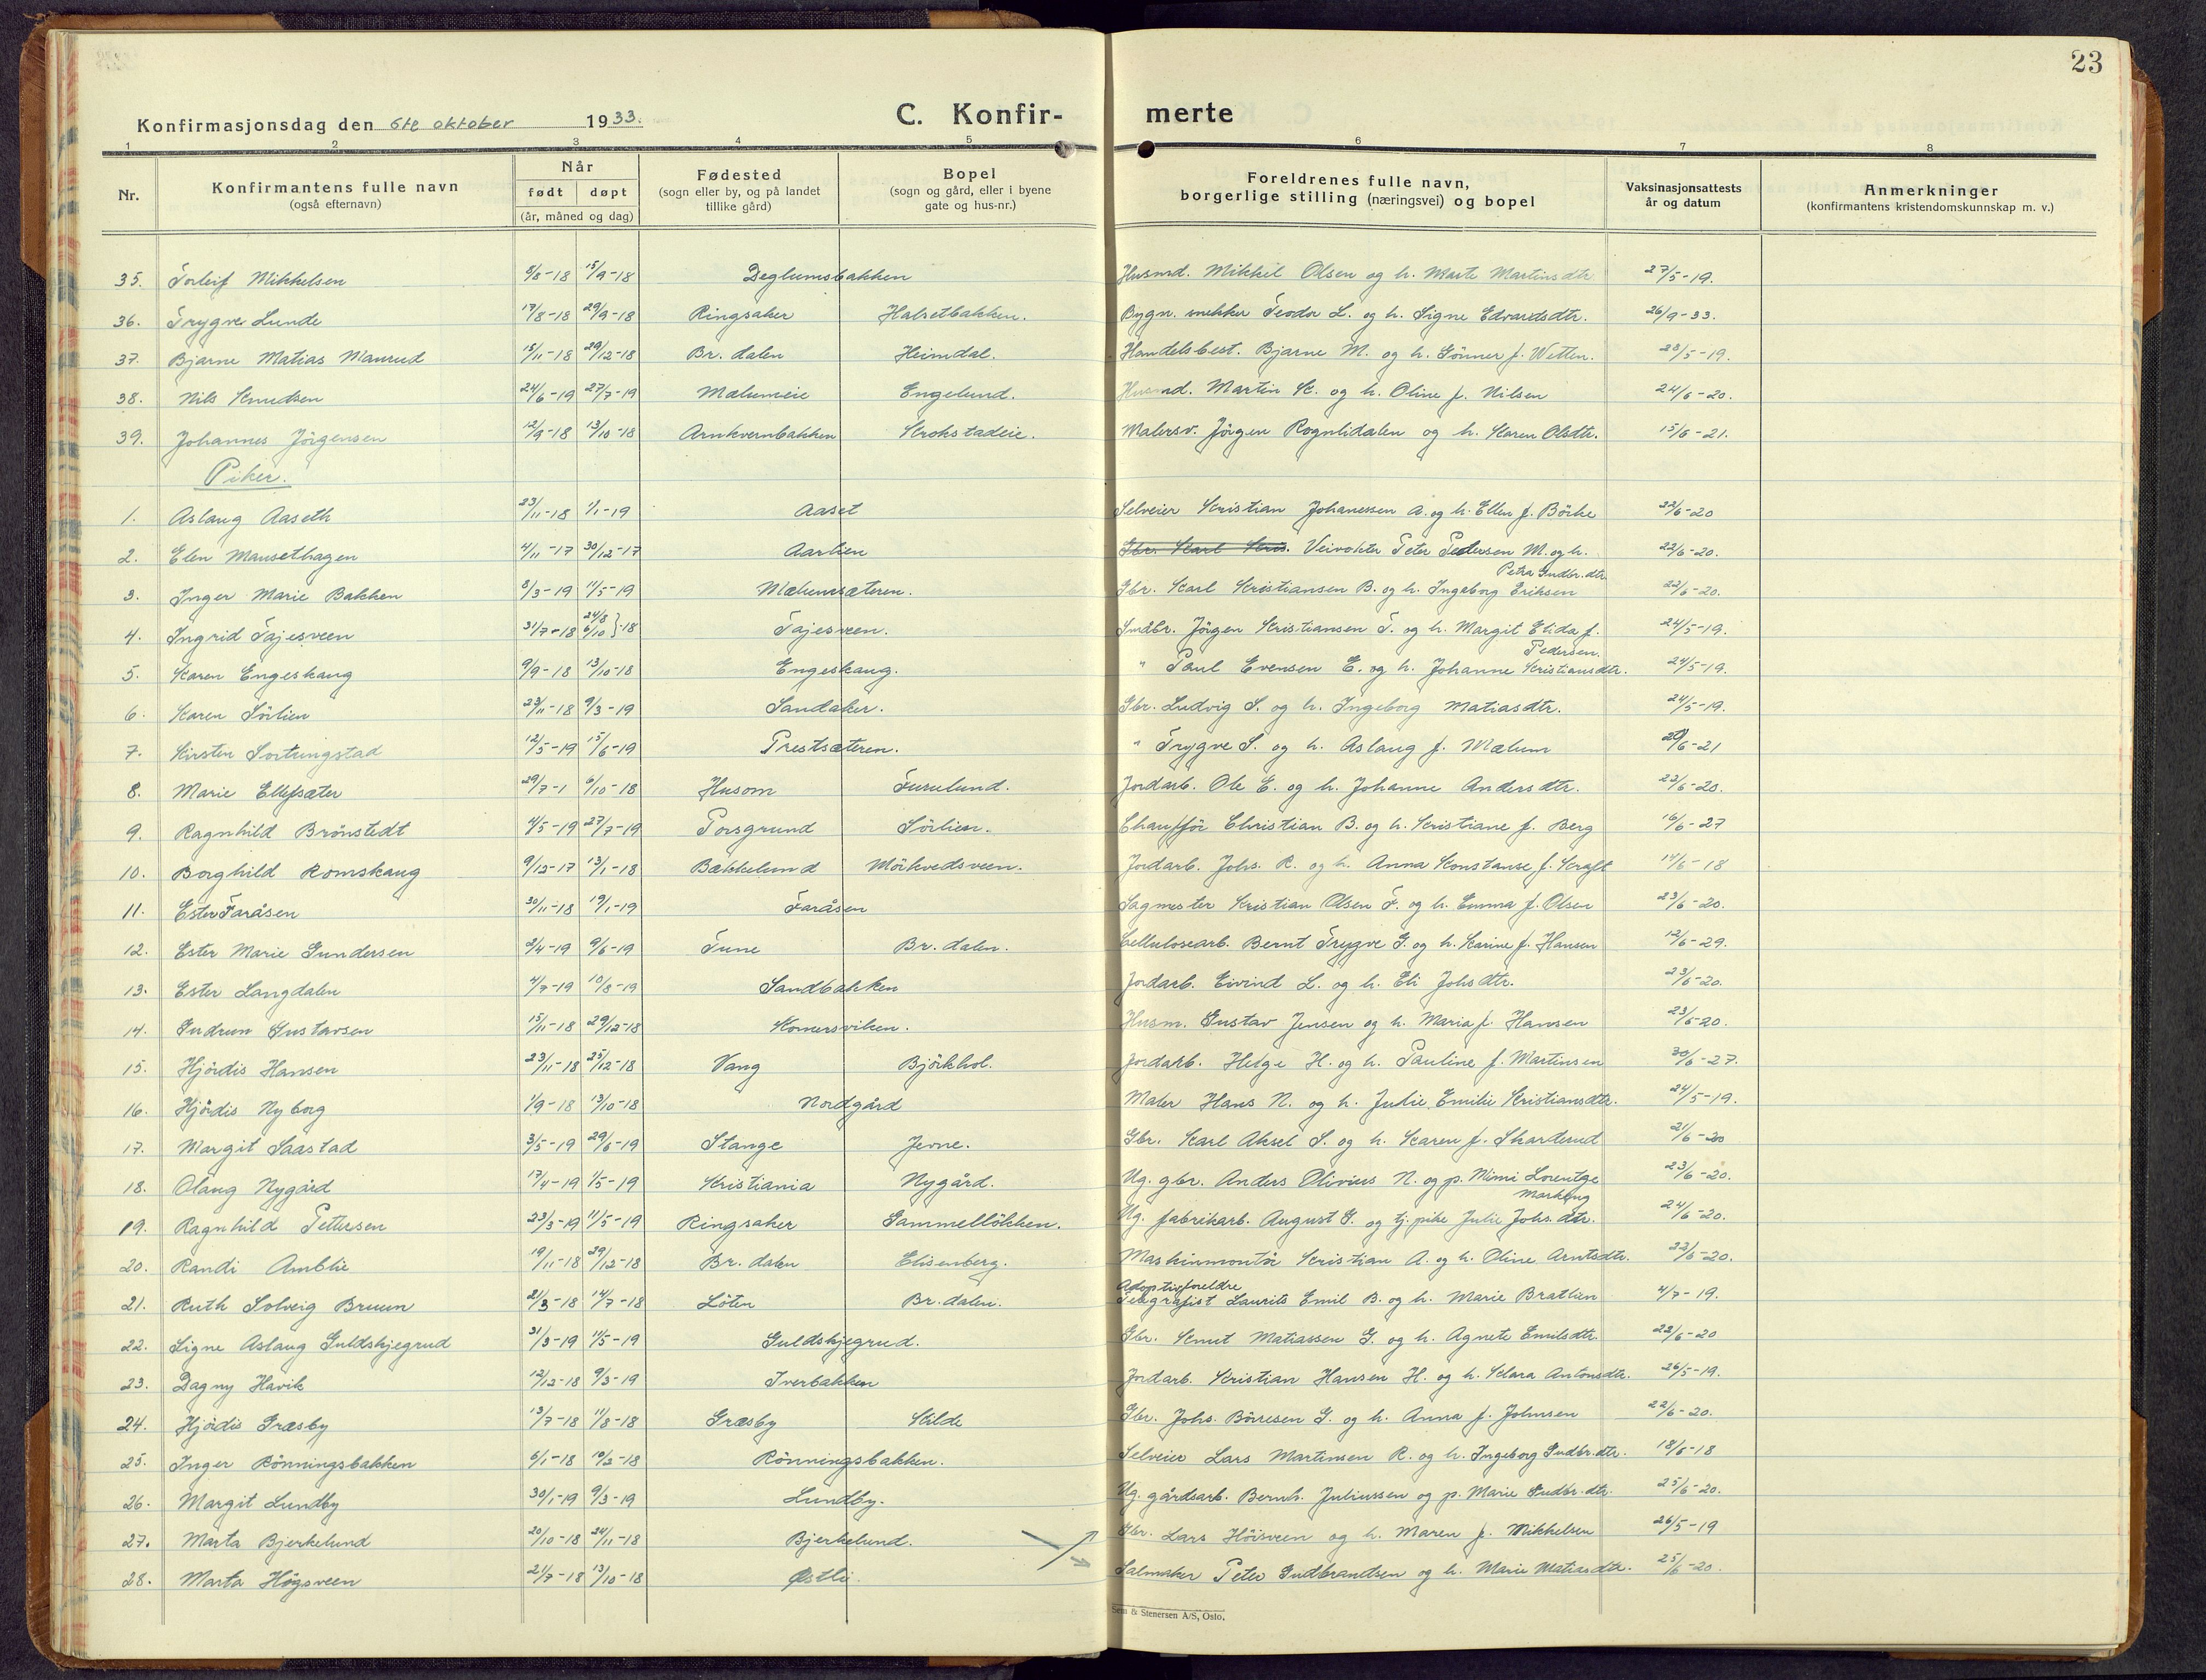 23
Konfirmasjonsdag den 6te oktober 1933.
C. Konfir-
merte
1 2 3 4 5 6 7 8
Nr.
Konfirmantens fulle navn
(også efternavn)
Når
født døpt
(år, måned og dag)
Fødested
(sogn eller by, og på landet
tillike gård)
Bopel
(sogn og gård, eller i byene
gate og hus-nr.)
Foreldrenes fulle navn,
borgerlige stilling (næringsvei) og bopel
Vaksinasjonsattests
år og datum
Anmerkninger
(konfirmantens kristendomskunnskap m. v.)
35. Torleif Mikkelsen 8/8-18 15/9-18 Deglumsbakken Husmd. Mikkel Olsen og h. Marte Martinsdtr 27/5-19.
36. Trygve Lunde 17/8-18 29/9-18 Ringsaker Halsetbakken. Bygn. snekker Teodor L. og h. Signe Edvardsdtr. 26/9-33.
37. Bjarne Matias Maurud 15/11-18 29/12-18 Br.dalen Heimdal. Handelsbest. Bjarne M. og h. Gönner f. Wetten. 23/5-19.
38. Nils Knudsen 24/6-19 27/7-19 Mælumeie Engelund. Husmd. Martin K. og h. Oline f. Nilsen 24/6-20.
39. Johannes Jörgensen 12/9-18 13/10-18 Arnkvernbakken Krokstadeie. Malersv. Jörgen Rognlidalen og h. Karen Olsdtr. 15/6-21.
Piker.
1. Aslaug Aaseth 23/11-18 1/1-19 Aaset Selveier Kristian Johanessen A. og h. Ellen f. Börke 22/6-20
2. Elen Mausethagen 4/11-17 30/12-17 Aarlien Gbr. Karl Kris. Veivokter Peter Pedersen M. og h.
Petra Gudbr.dtr 22/6-20.
3. Inger Marie Bakken 8/3-19 11/5-19 Mælumsæteren. Gbr. Karl Kristiansen B. og h. Ingeborg Eriksen 22/6-20.
4. Ingrid Tajesveen 31/7-18 24/8 6/10 }-18 Tajesveen. Smdbr. Jörgen Kristiansen T. og h. Margit Elida f.
Pedersen. 24/5-19.
5. Karen Engeskaug 9/9-18 13/10-18 Engeskaug. " Paul Evensen E. og h. Johanne Kristiansdtr. 24/5-19.
6. Karen Sörlien 23/11-18 9/3-19 Sandaker. Gbr. Ludvig S. og h. Ingeborg Matiasdtr. 24/5-19.
7. Kirsten Sortungstad 12/5-19 15/6-19 Prestsæteren. " Trygve S. og h. Aslaug f. Mælum 20/6-21
8. Marie Ellefsæter 29/7-1 6/10-18 Husom Furulund. Jordarb. Ole E. og h. Johanne Andersdtr. 23/6-20.
9. Ragnhild Brönstedt 4/5-19 27/7-19 Porsgrund Sörlien. Chaufför Christian B. og h. Kristiane f. Berg 16/6-27
10. Borghild Romskaug 9/12-17 13/1-18 Bækkelund Mörkvedsveen. Jordarb. Johs. R. og h. Anna Konstanse f. Kraft 14/6-18
11. Ester Faråsen 30/11-18 19/1-19 Faråsen Sagmester Kristian Olsen F. og h. Emma f. Olsen 23/6-20.
12. Ester Marie Gundersen 2/4-19 9/6-19 Tune Br.dalen. Cellulosearb. Bernt Trygve G. og h. Karine f. Hansen 12/6-29.
13. Ester Langdalen 4/7-19 10/8-19 Sandbakken Jordarb. Eivind L. og h. Eli Johsdtr. 23/6-20.
14. Gudrun Gustavsen 15/11-18 29/12-18 Komersviken. Husm. Gustav Jensen og h. Maria f. Hansen 23/6-20.
15. Hjördis Hansen 23/11-18 25/12-18 Vang Björkhol. Jordarb. Helge H. og h. Pauline f. Martinsen 30/6-27.
16. Hjördis Nyborg 1/9-18 13/10-18 Nordgård Maler Hans N. og h. Julie Emilie Kristiansdtr. 24/5-19.
17. Margit Saastad 3/5-19 29/6-19 Stange Jevne. Gbr. Karl Aksel S. og h. Karen f. Skarderud 21/6-20
18. Olaug Nygård 17/4-19 1/5-19 Kristiania Nygård. Ug. gbr. Anders Olivius N. og p. Mimi Lorentze
Markeng 23/6-20.
19. Ragnhild Pettersen 23/3-19 11/5-19 Ringsaker Gammellökken. Ug. fabrikarb. August G. og tj.pike Julie Johs.dtr. 24/6-20.
20. Randi Amblie 19/11-18 29/12-18 Br.dalen Elisenberg. Maskinmontör Kristian A. og h. Oline Arntsdtr. 22/6-20.
21. Ruth Solveig Bruun 21/3-18 14/7-18 Löten Br.dalen. Adoptivforeldre
Telegrafist Laurits Emil B. og h. Marie Brathen 4/7-19.
22. Signe Aslaug Guldskjegrud 31/3-19 11/5-19 Guldskjegrud. Gbr. Knut Matiassen G. og h. Agnete Emilsdtr. 22/6-20
23. Dagny Havik 12/12-18 9/3-19 Iverbakken Jordarb. Kristian Hansen H. og h. Klara Antonsdtr. 26/5-19.
24. Hjördis Græsby 13/7-18 11/8-18 Græsby Kilde Gbr. Johs. Börresen G. og h. Anna f. Johnsen 22/6-20.
25. Inger Rönningsbakken 6/1-18 10/2-18 Rönningsbakken. Selveier Lars Martinsen R. og h. Ingeborg Gudbr.dtr. 18/6-18
26. Margit Lundby 30/1-19 9/3-19 Lundby. Ug. gårdsarb. Bernh. Juliussen og p. Marie Gudbr.dtr. 25/6-20.
27. Marta Bjerkelund 20/10-18 24/11-18 Bjerkelund. Gbr. Lars Höisveen og h. Maren f. Mikkelsen 26/5-19
28. Marta Högsveen 21/7-18 13/10-18 Østli. Salmaker Peter Gudbrandtsen og h. Marie Matiasdtr. 25/6-20.
Sem & Stenersen A/S, Oslo.